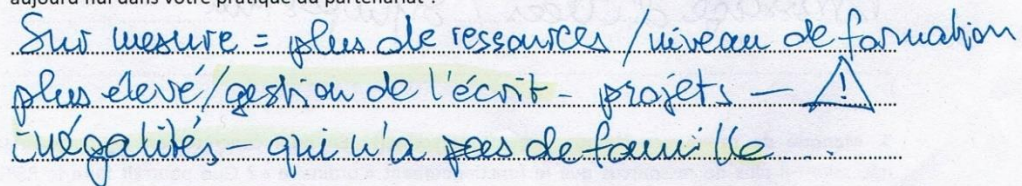 aujourd'hui dans votre pratique du partenariat ?
Sur mesure = plus de ressources / niveau de formation
plus élevé / gestion de l'écrit - projets - ⚠
inégalités - qui n'a pas de famille ....